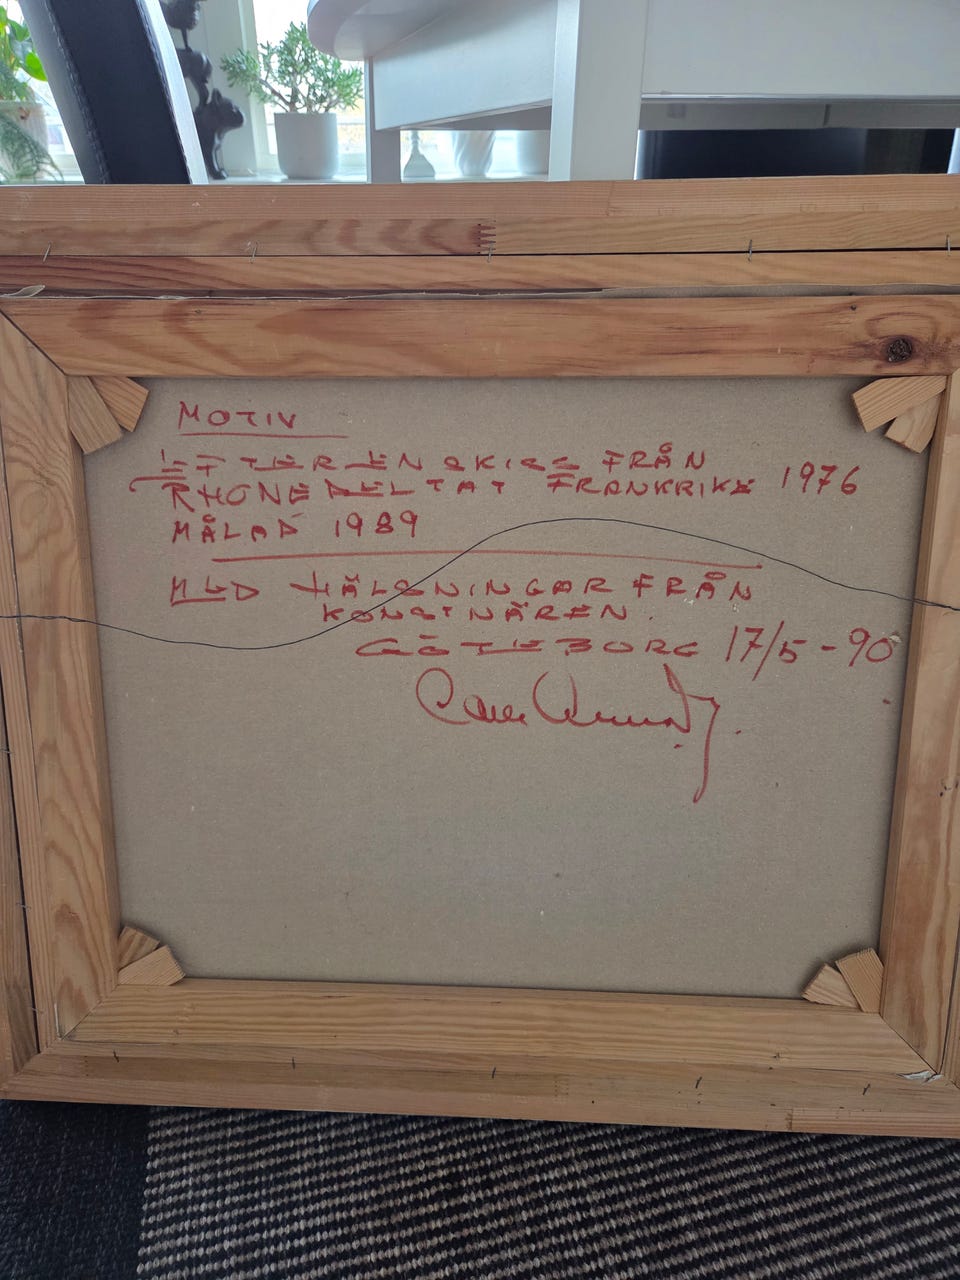 MOTIV
EFTER EN SKISS FRÅN
RHONEDELTAT FRANKRIKE 1976
MÅLAD 1989
MED HÄLSNINGAR FRÅN
KONSTNÄREN.
GÖTEBORG 17/5-90